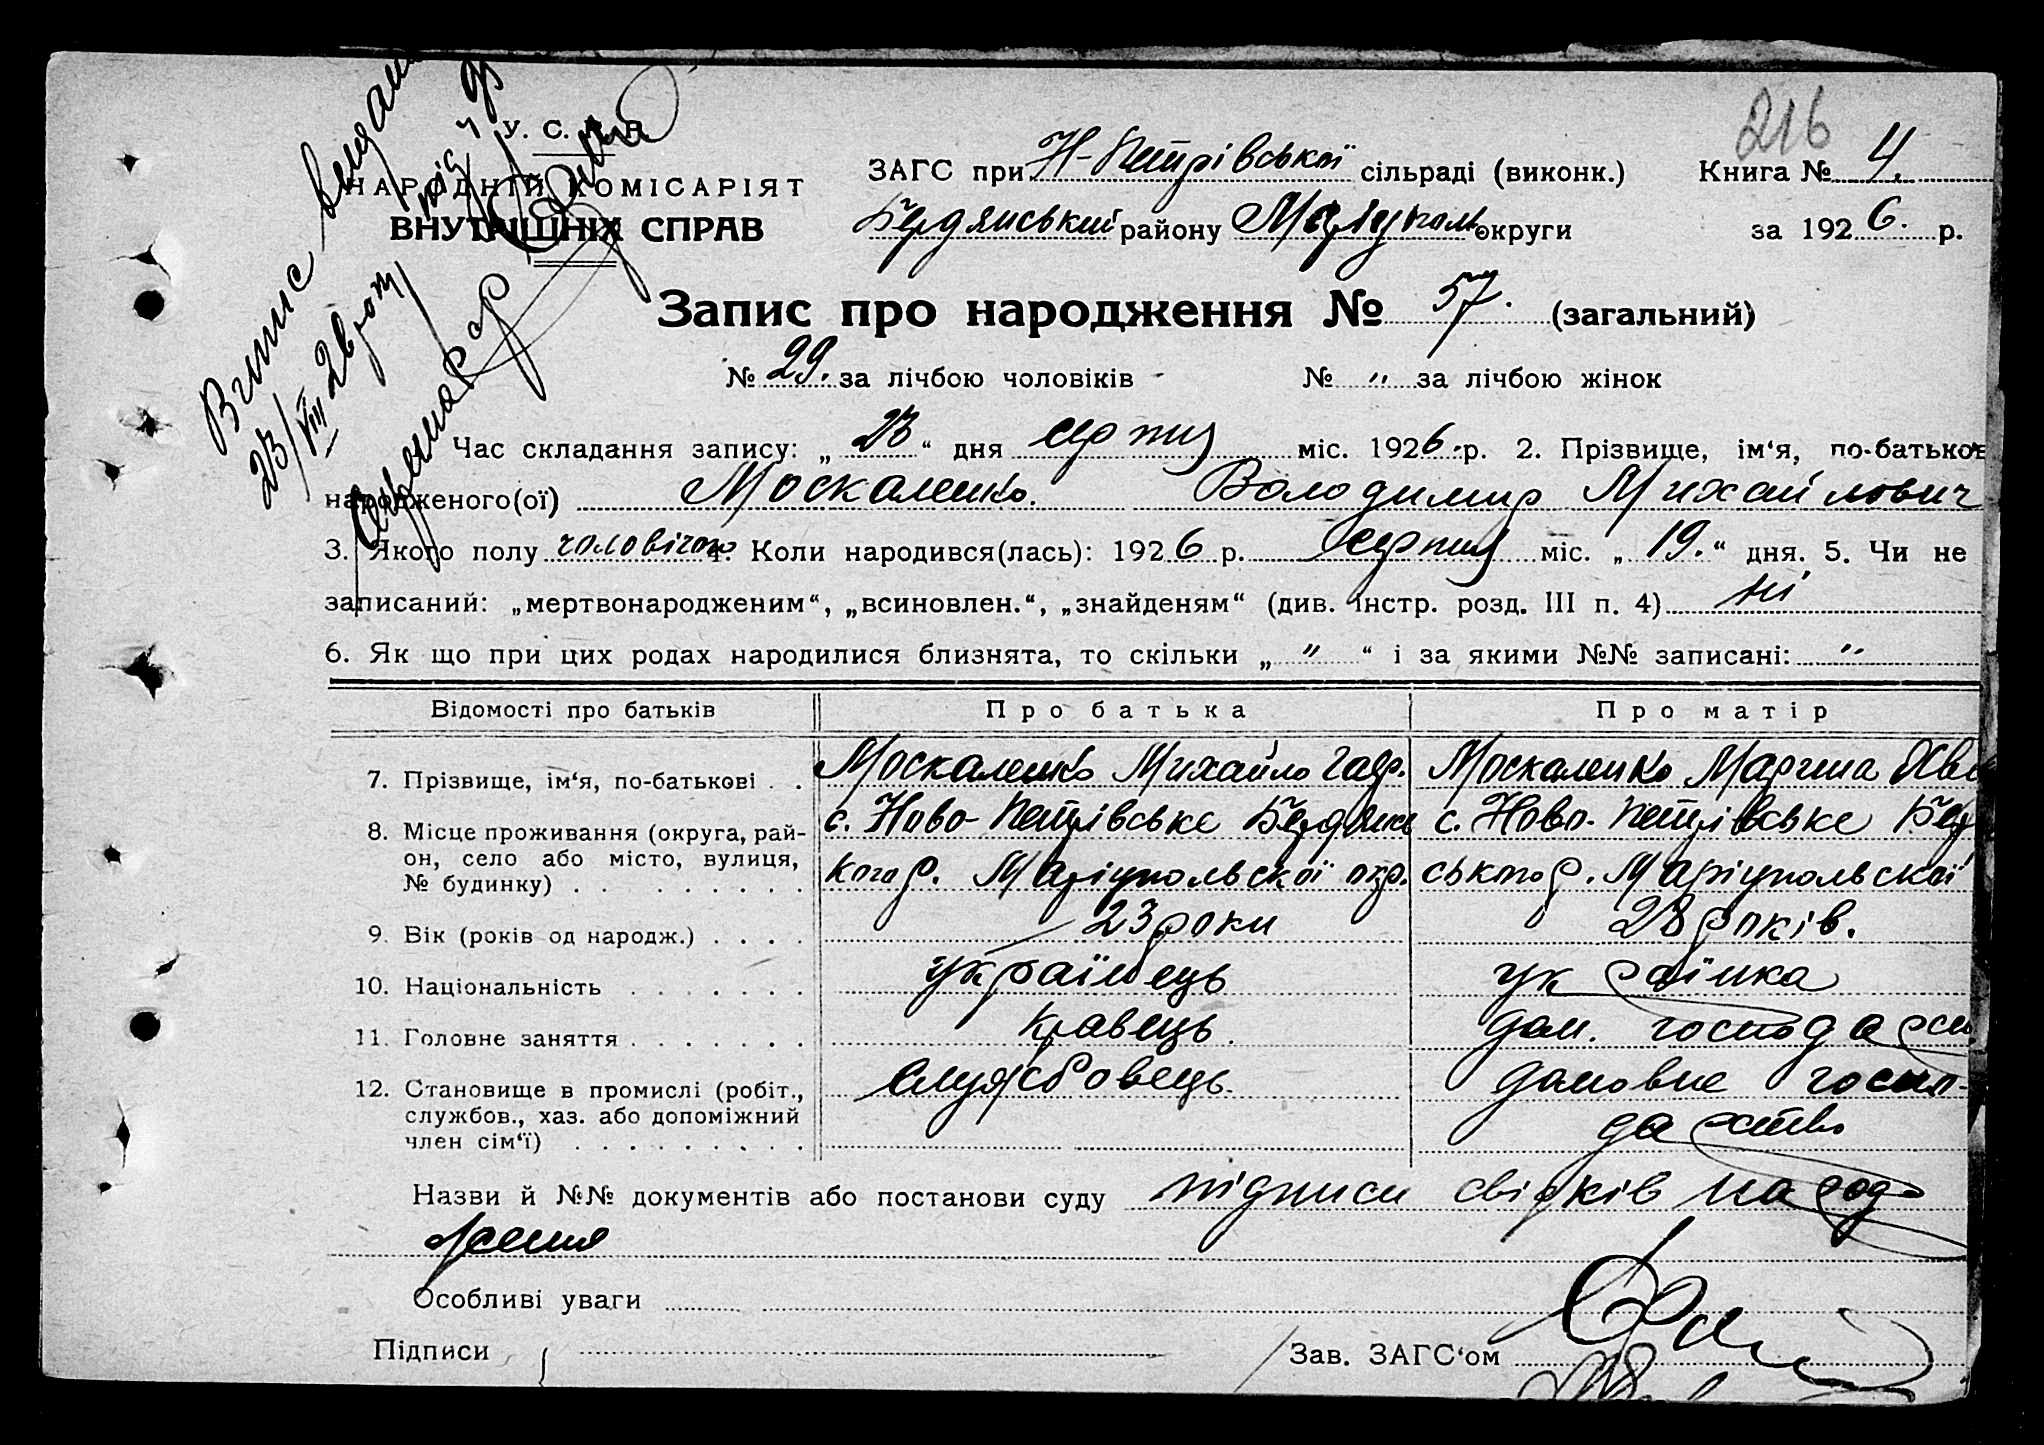 216
У. С. Р. Р.
НАРОДНІЙ КОМІСАРІЯТ
ВНУТРІШНІХ СПРАВ
ЗАГС при Н-Петрівської сільраді (виконк.) Книга № 4.
Бердянський району Маріуполь округи за 1926. р.
Витис видано
23/VIII 26 року
Запис про народження № 57. (загальний)
№ 29. за лічбою чоловіків № " за лічбою жінок
Час складання запису: „ 23 “ дня серпня міс. 1926 р. 2. Прізвище, ім‘я, по-батьков
народженого(ої) Москаленко. Володимир Михайлович
3. Якого полу чоловічого 4. Коли народився(лась): 1926 р. серпня міс. „ 19. “ дня. 5. Чи не
записаний: „мертвонародженим“, „всиновлен.“, „знайденям“ (див. інстр. розд. III п. 4) ні
6. Як що при цих родах народилися близнята, то скільки „ " “ і за якими №№ записані: "
Відомості про батьків Про батька Про матір
7. Прізвище, ім‘я, по-батькові . . Москаленко Михайло Гавр. Москаленко Марина Хв
8. Місце проживання (округа, рай-
он, село або місто, вулиця,
№ будинку) . . . . . . . . .
с. Ново-Петрівське Бердянсь
кого р. Маріупольської окр.
с. Ново-Петрівське Бер
ського р. Маріупольської
9. Вік (років од народж.) . . . . 23 роки 28 років.
10. Національність . . . . . . . українець українка
11. Головне заняття . . . . . . . кравець. дом. господарки
12. Становище в промислі (робіт.,
службов., хаз. або допоміжний
член сім‘ї) . . . . . . . . .
службовець.
домовне госпо-
дарство
Назви й №№ документів або постанови суду підписи свідків народ
ження
Особливі уваги
Підписи Зав. ЗАГС‘ом